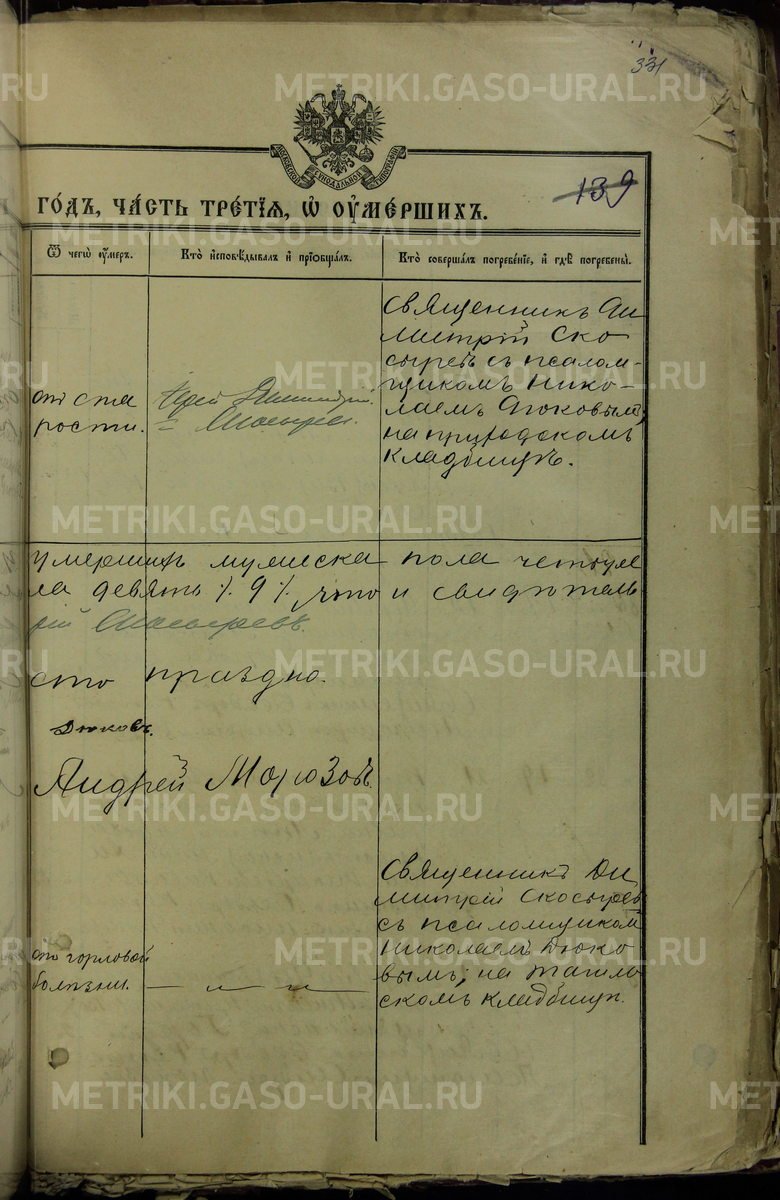 331
МОСКОВСКОЙ СѴНОДАЛЬНОЙ ТИПОГРАФІИ
139
ГО́ДЪ, ЧА́СТЬ ТРЕ́ТІѦ, Ѡ ОУ҆МЕ́РШИХЪ.
Ѿ чегѡ̀ оу҆́меръ.
Кто̀ и҆сповѣ́дывалъ и҆ прїѡбща́лъ.
Кто̀ соверша́лъ погребе́нїе, и҆ гдѣ̀ погребены̀.
отъ ста
рости.
Іерей Димитрій
Скосырев.
Священникъ Ди
митрій Ско
сыревъ съ псалом-
щикомъ Нико-
лаемъ Дюковым,
на приходскомъ
кладбищѣ.
умершихъ мужеска пола четыре
ла девять ·/. 9 ·/., что и свидѣтель
рій Скосыревъ.
сто праздно.
Дюковъ.
Андрей Морозовъ.
отъ горловой
болѣзни.
— „ — „ —
Священникъ Ди
митрій Скосырев
съ псаломщиком
Николаемъ Дюко
вымъ; на
скомъ кладбищѣ.
METRIKI.GASO-URAL.RU